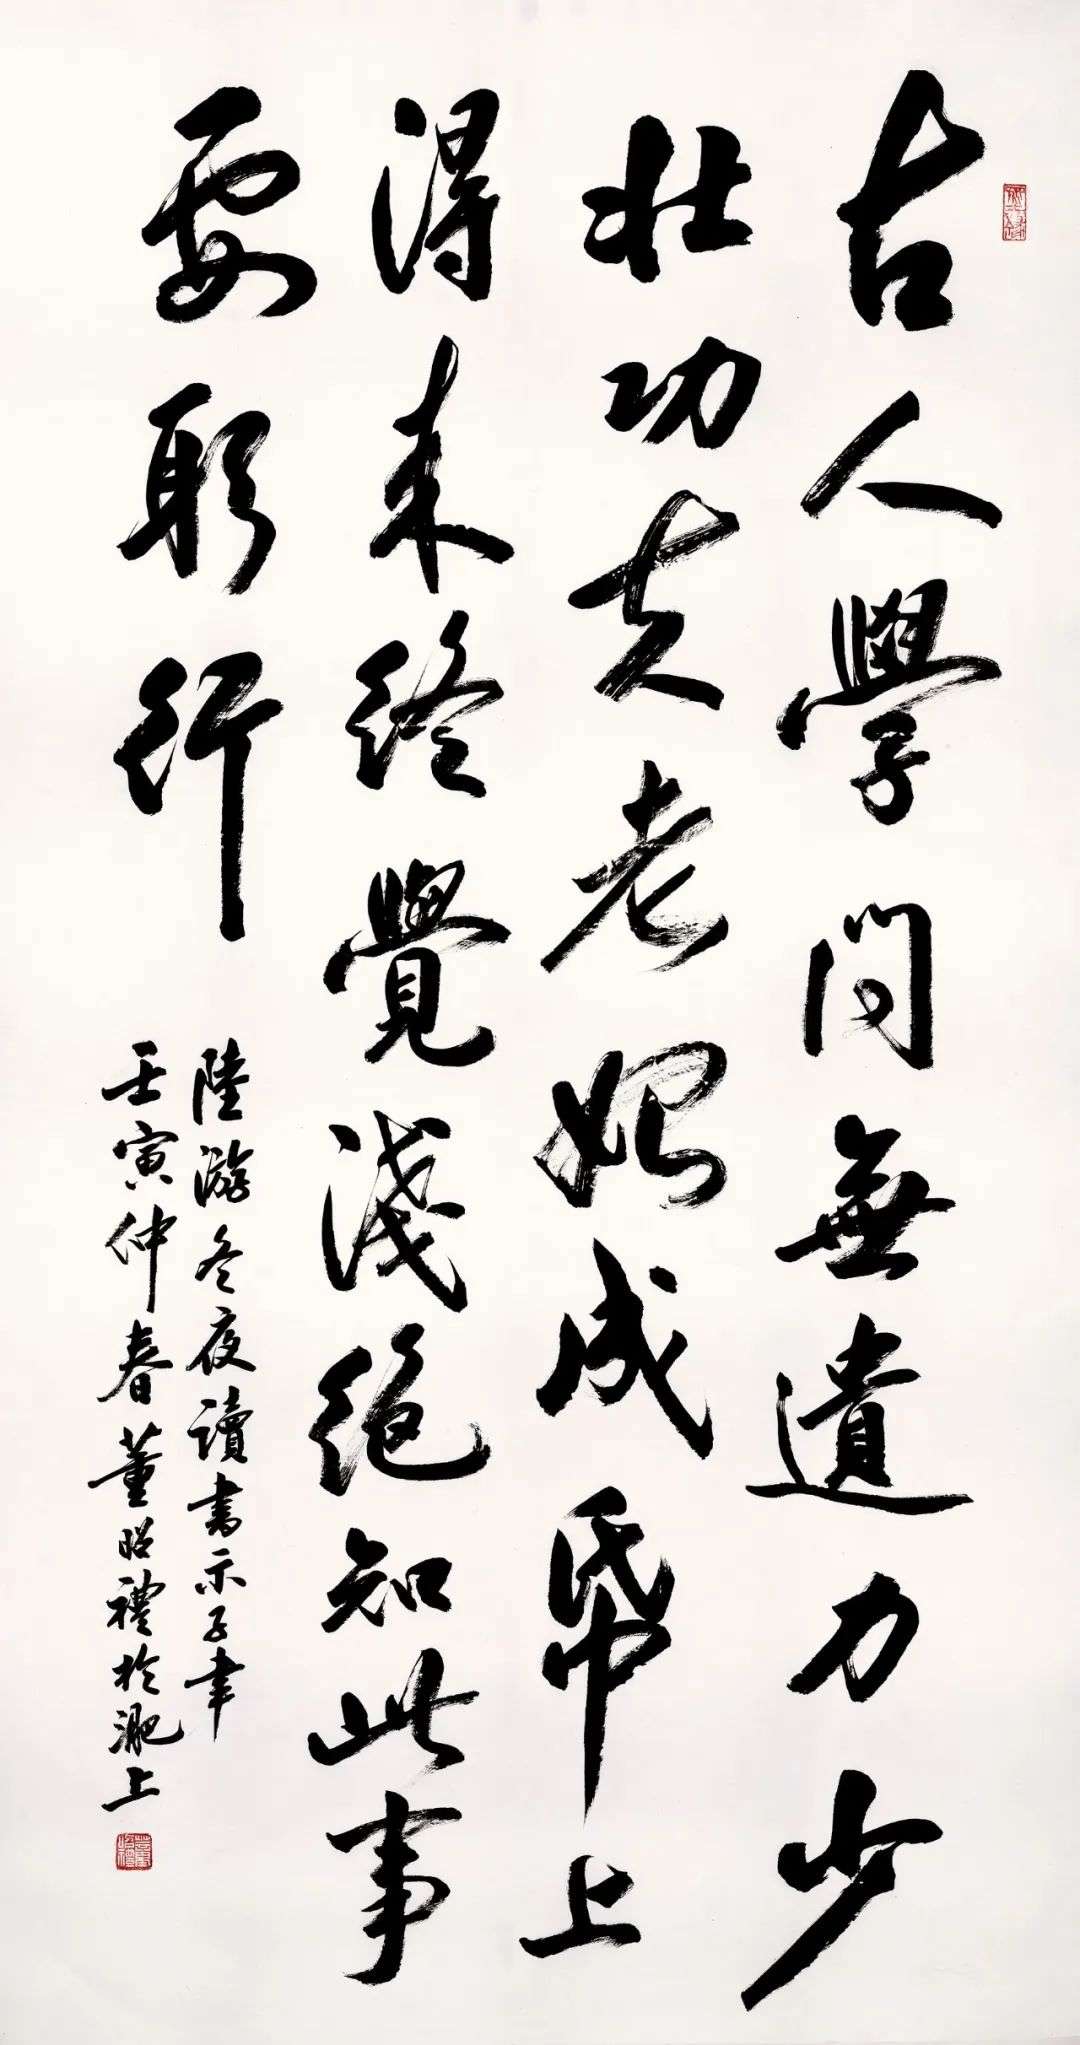 古人學問無遺力少
壯功夫老始成帋上
得来終覺淺絕知此事
要躬行
陸游冬夜讀書示子聿
壬寅仲春董昭禮於淝上